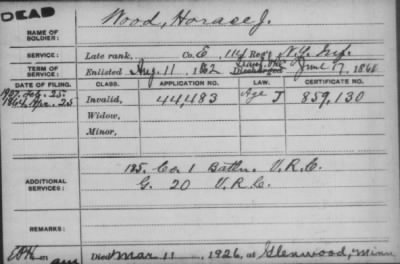 DEAD
NAME OF SOLDIER: Wood, Horace J.
SERVICE: Late rank, Co. E, Reg't N.Y. Inf.
TERM OF SERVICE: Enlisted Aug. 11, 1862 Discharged June 17, 186
DATE OF FILING. CLASS. APPLICATION NO. LAW. CERTIFICATE NO.
1907. Feb. 25.
1864. Apr. 25 Invalid, 44483 Age J 859,130
Widow,
Minor,
ADDITIONAL SERVICES: 125. Co. 1 Battn. V.R.C.
G. 20 V.R.C.
REMARKS:
Died Mar 11, 1926, at Glenwood, Minn